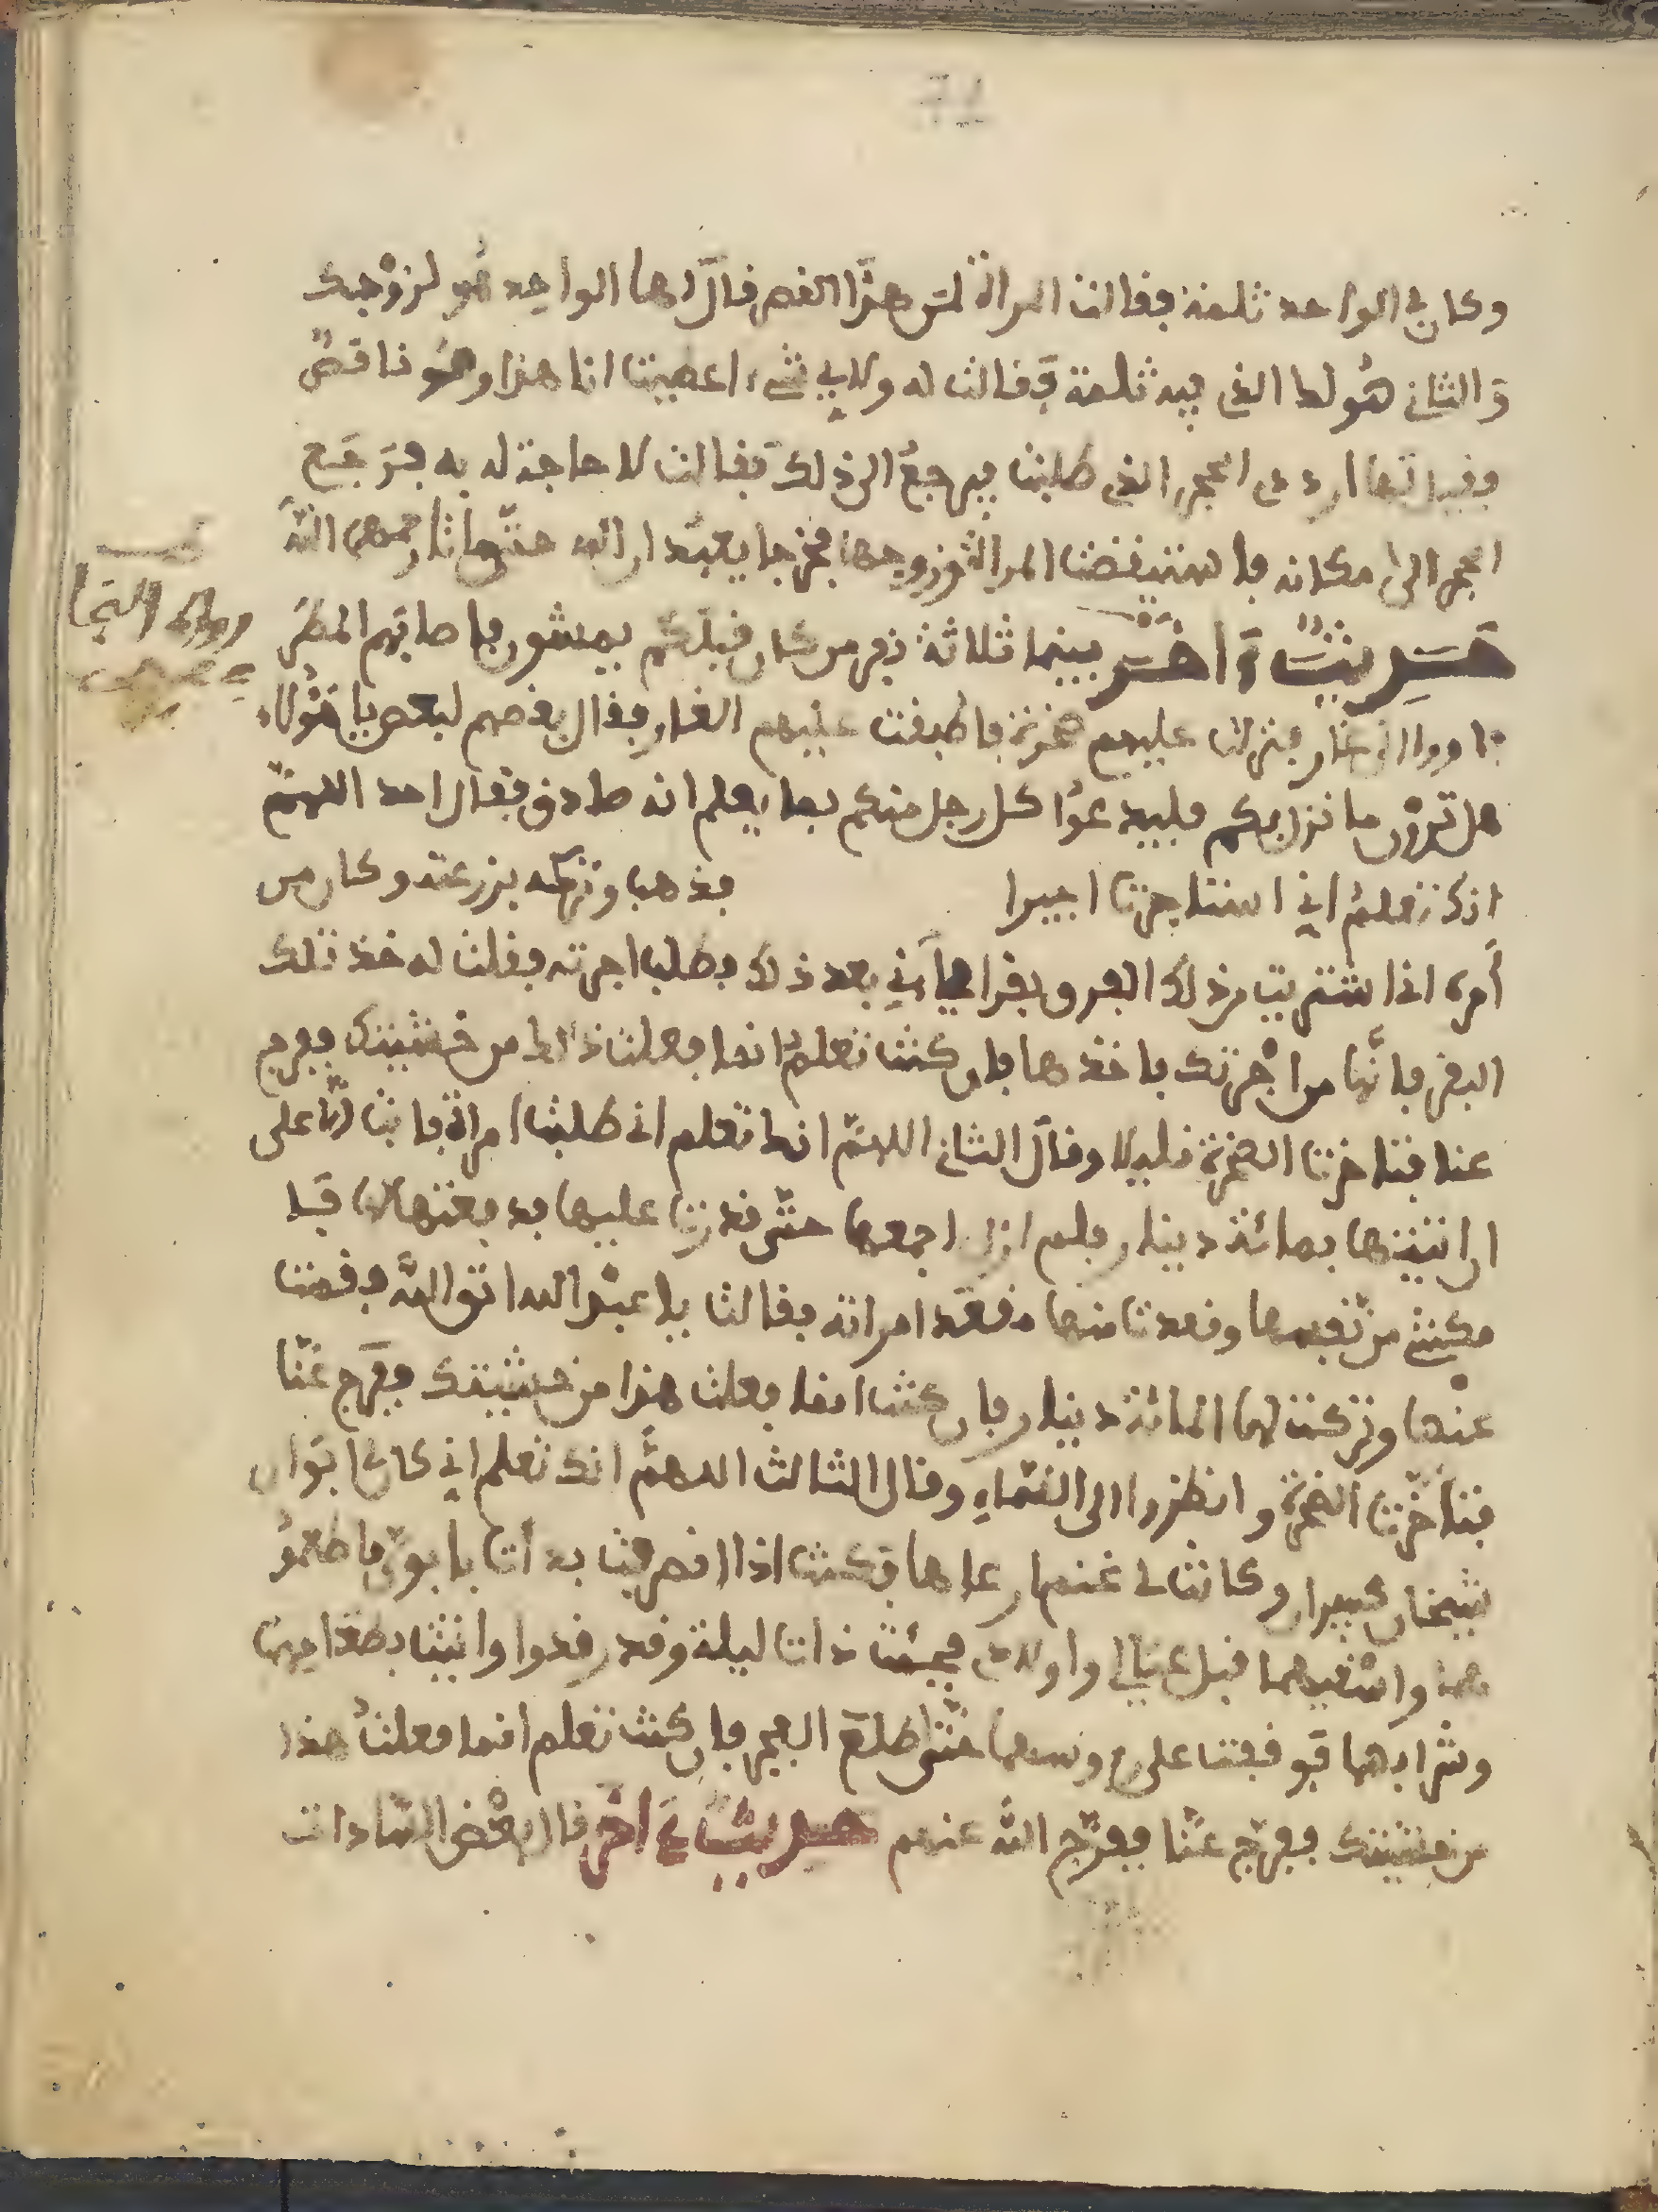 وكان في الواحد ثلمة فقالت المراة لمن هذا القصر قال لها الواحد هو لزوجك
والثاني هو لك الذي فيه ثلمة فقالت له ولاي شيء اعطيت انا هذا وهو ناقص
فقيل لها ردي الحجر الذي طلبت فيرجع الى ذلك فقالت لا حاجة له به فرجع
الحجر الى مكانه فاستيقضت المراة وزوجها فخرجا يعبدان الله حتى ماتا رحمهما الله
رواه البخا
حديث اخر بينما ثلاثة نفر من كان قبلكم يمشون فاصابهم المطر
فاووا الى غار فنزلت عليهم صخرة فاطبقت عليهم الغار فقال بعضهم لبعض يا هؤلاء
هل ترون ما نزل بكم فليدعوا كل رجل منكم بما يعلم انه صادق فقال احد اللهم
انك تعلم اني استاجرت اجيرا فذهب وتركه بزرعته وكان من
أمره اني اشتريت من ذلك الفرق بقرا اتاني بعد ذلك فطلب اجرته فقلت له خذ تلك
البقر فانها من اجرتك فاخذها فان كنت تعلم انما فعلت ذلك من خشيتك ففرج
عنا فتاخرت الصخرة قليلا وقال الثاني اللهم انك تعلم اني طلبت امراة فابت الا على
ان اتيتها بمائة دينار فلم ازل اجمعها حتى قدرت عليها فدفعتها لها فلما
مكنتني من نفسها وقعدت منها مقعد امراته فقالت يا عبد الله اتق الله فقمت
عنها وتركت لها المائة دينار فان كنت انما فعلت هذا من خشيتك ففرج عنا
فتاخرت الصخرة وانظروا الى السماء وقال الثالث اللهم انك تعلم اني كان لي ابوان
شيخان كبيران وكانت لي غنم ارعاها فكنت اذا انصرفت بدأت بابوي فاطعمو
هما واسقيهما قبل عيالي واولادي فجئت ذات ليلة وقد رقدوا واتيت بطعامهما
وشرابهما فوقفت على روسهما حتى طلع الفجر فان كنت تعلم انما فعلت هذا
من خشيتك ففرج عنا ففرج الله عنهم حديث اخر قال بعض السادات